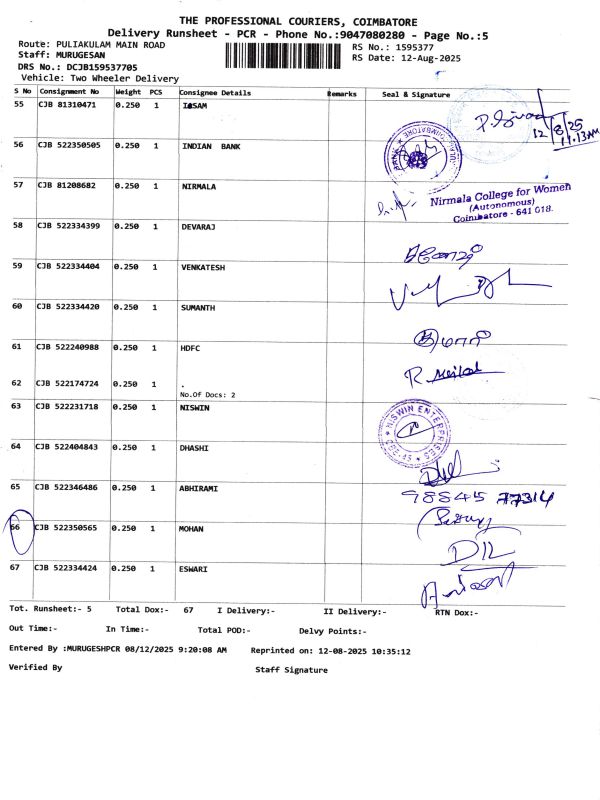 THE PROFESSIONAL COURIERS, COIMBATORE
Delivery Runsheet - PCR - Phone No.:9047080280 - Page No.:5
Route: PULIAKULAM MAIN ROAD
RS No.: 1595377
Staff: MURUGESAN
RS Date: 12-Aug-2025
DRS No.: DCJB159537705
Vehicle: Two Wheeler Delivery
S No Consignment No Weight PCS Consignee Details Remarks Seal & Signature
55 CJB 81310471 0.250 1 IOSAM
12/8/25
11.13AM
56 CJB 522350505 0.250 1 INDIAN BANK
57 CJB 81208682 0.250 1 NIRMALA
Nirmala College for Women
(Autonomous)
Coimbatore - 641 018.
58 CJB 522334399 0.250 1 DEVARAJ
59 CJB 522334404 0.250 1 VENKATESH
60 CJB 522334420 0.250 1 SUMANTH
61 CJB 522240988 0.250 1 HDFC
62 CJB 522174724 0.250 1 .
No.Of Docs: 2
63 CJB 522231718 0.250 1 NISWIN
NISWIN ENTERPRISES
64 CJB 522404843 0.250 1 DHASHI
65 CJB 522346486 0.250 1 ABHIRAMI
98845 77314
66 CJB 522350565 0.250 1 MOHAN
67 CJB 522334424 0.250 1 ESWARI
Tot. Runsheet:- 5 Total Dox:- 67 I Delivery:- II Delivery:- RTN Dox:-
Out Time:- In Time:- Total POD:- Delvy Points:-
Entered By :MURUGESHPCR 08/12/2025 9:20:08 AM Reprinted on: 12-08-2025 10:35:12
Verified By Staff Signature